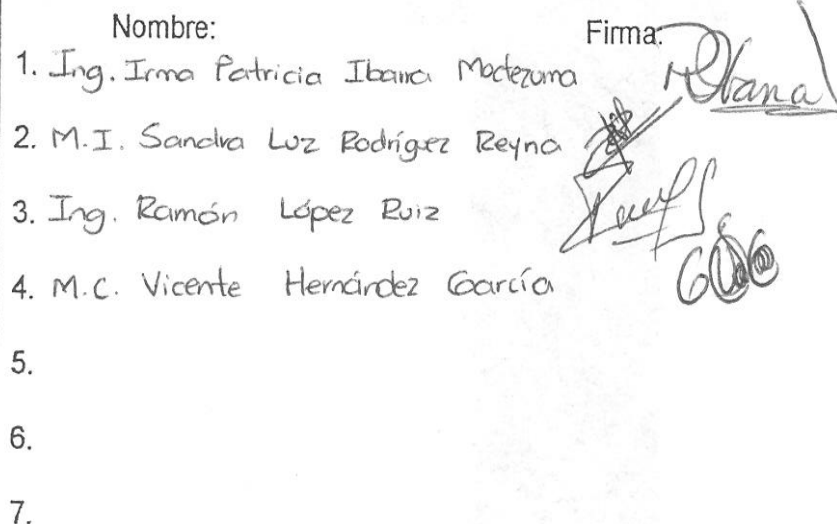 Nombre: Firma:
1. Ing. Irma Patricia Ibarra Moctezuma
2. M.I. Sandra Luz Rodríguez Reyna
3. Ing. Ramón López Ruiz
4. M.C. Vicente Hernández García
5.
6.
7.